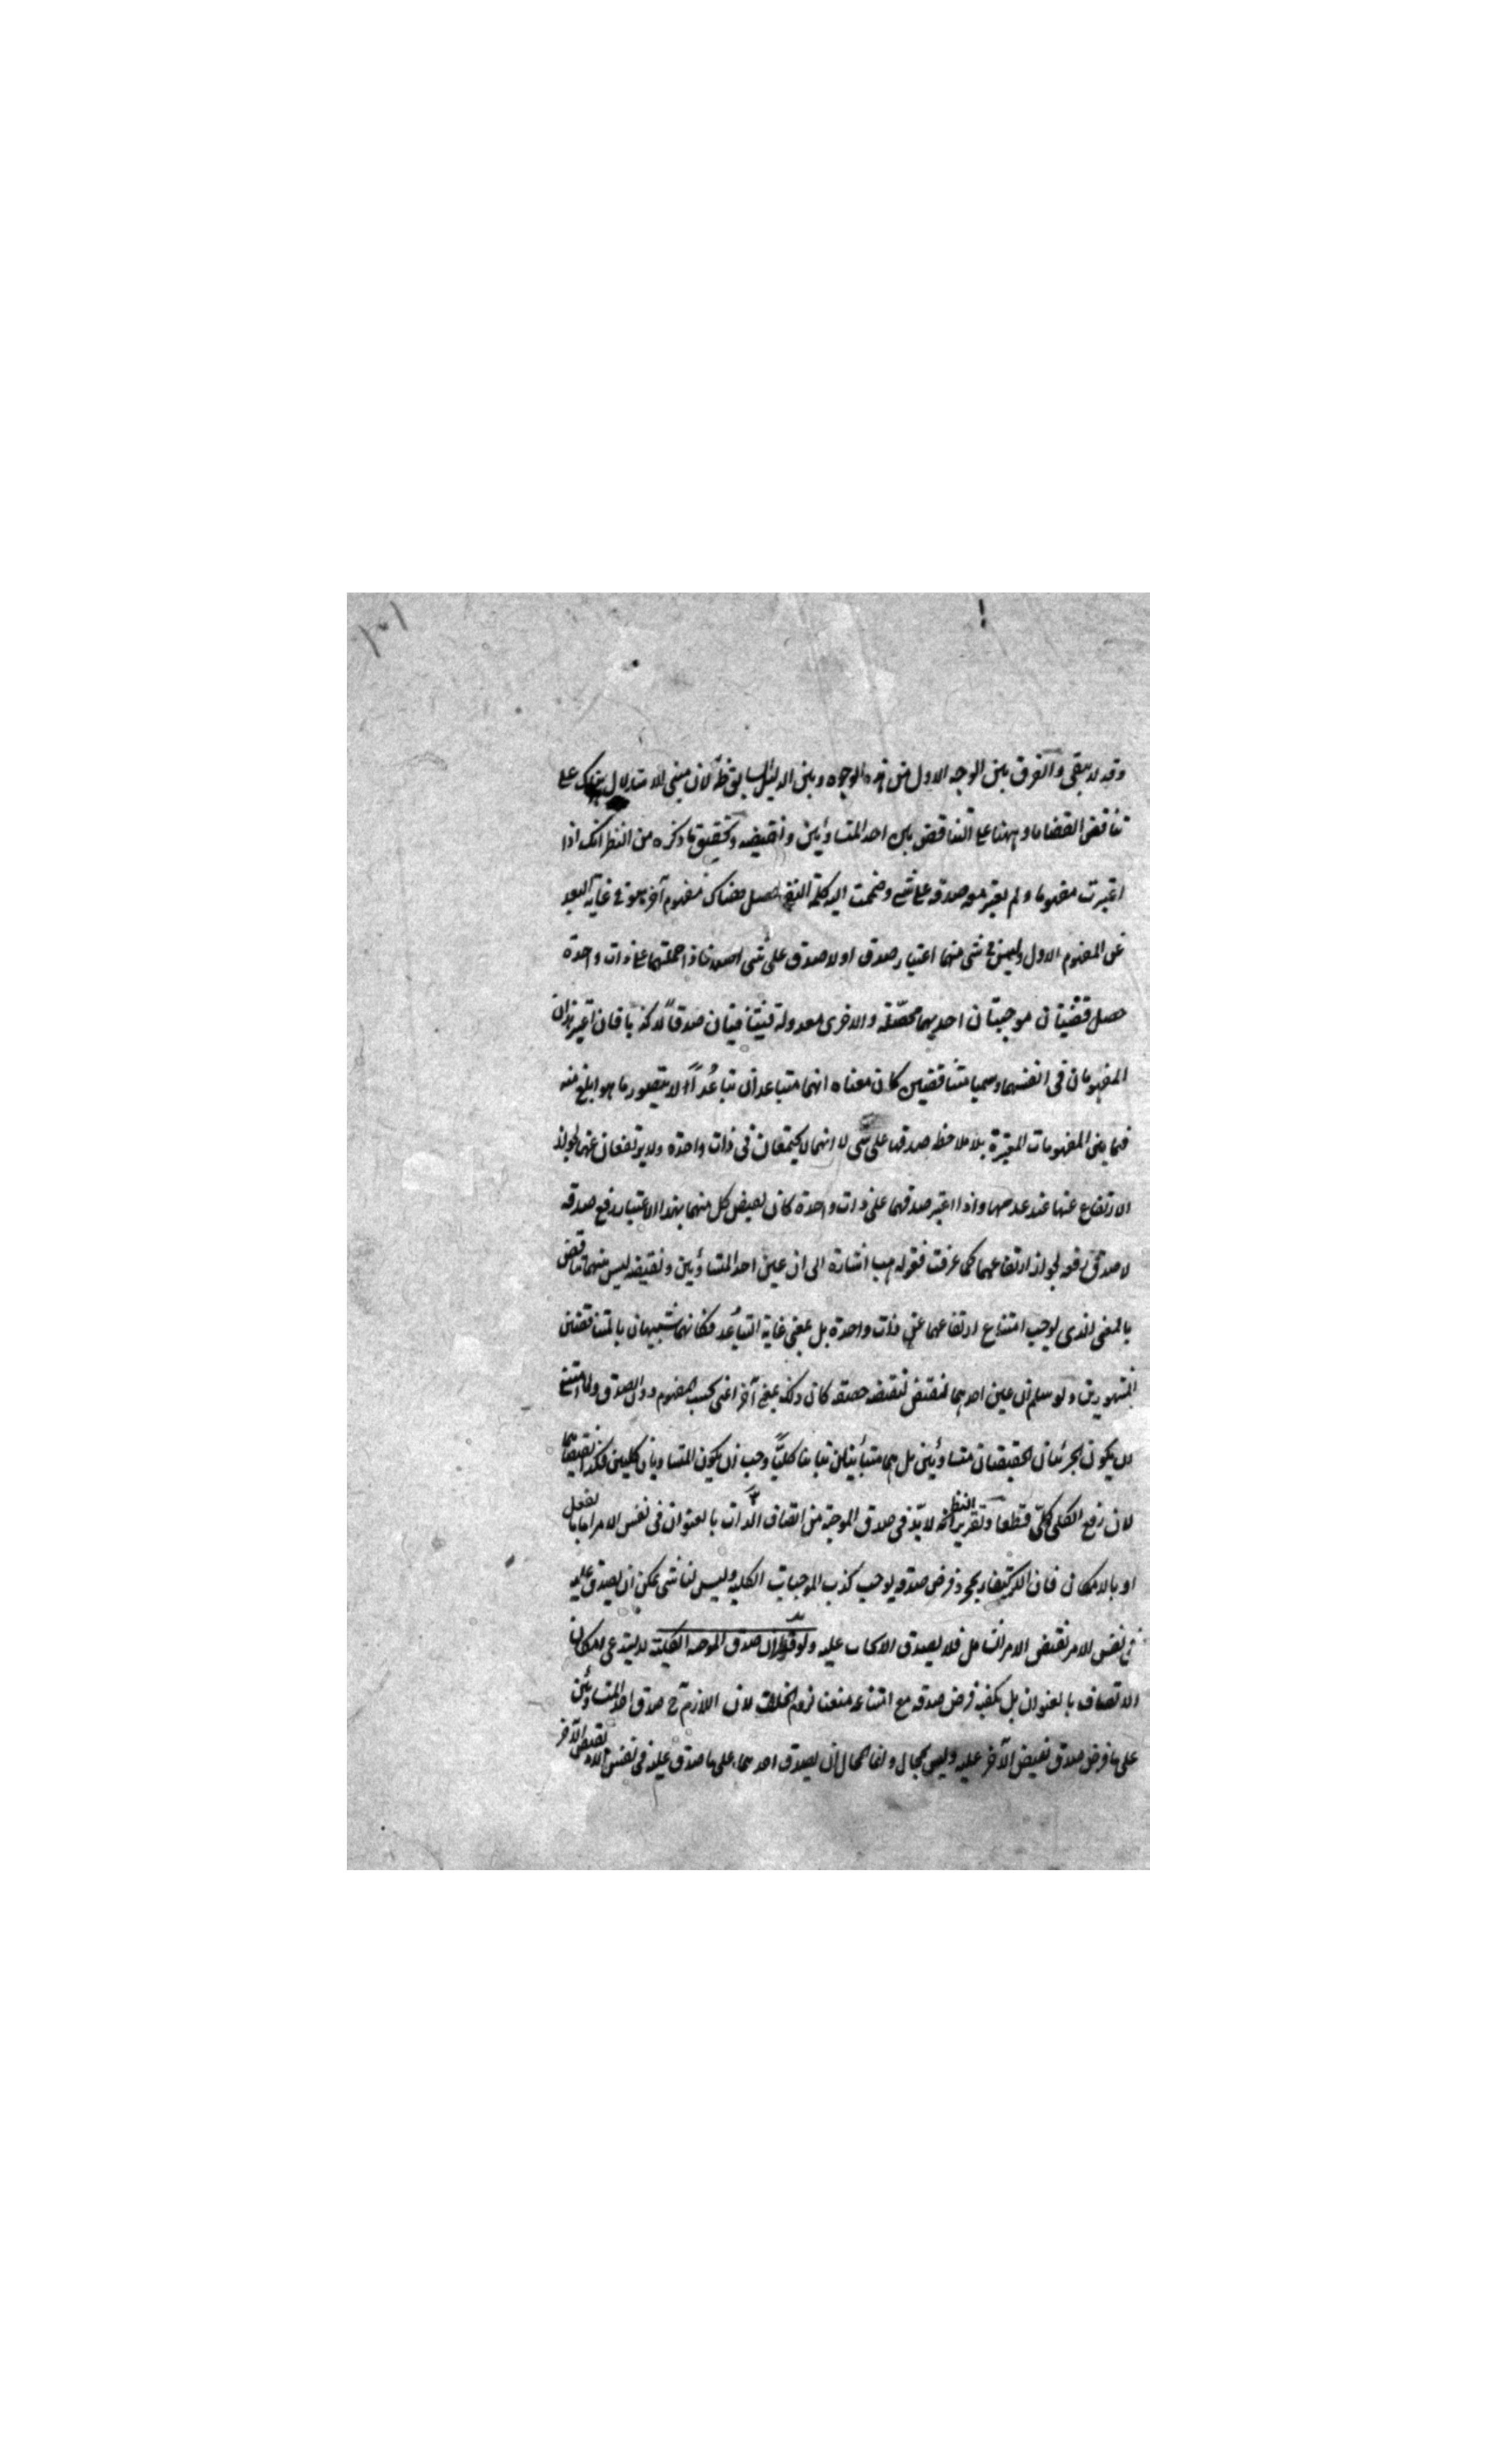 وقد لا يبقى والفرق بين الوجه الاول من هذه الوجوه وبين الدليل السابق ظ لان مبنى الاستدلال هناك على
تناقض القضايا وههنا على التناقض بين احد المتساويين ونقيضه وتحقيق ما ذكره من النظر انك اذا
اعتبرت مفهوما ولم يعتبر معه صدقه على شئ وضممت اليه كلمة النفى حصل هناك مفهوم آخر هو فى غاية البعد
عن المفهوم الاول وليس فى شئ منهما اعتبار صدق او لا صدق على شئ اصلا فاذا حملتهما على ذات واحدة
حصل قضيتان موجبتان احديهما محصّلة والاخرى معدولة فيتنافيتان صدقاً لا كذبا فان اعتبر هذان
المفهومان فى انفسهما وسميا متناقضين كان معناه انهما متباعدان تباعُداً لا يتصور ما هو ابلغ منه
فيما بين المفهومات المعتبرة بلا ملاحظة صدقها على شئ لا انهما لا يجتمعان فى ذات واحدة ولا يرتفعان عنها لجواز
الارتفاع عنها عند عدمها واذا اعتبر صدقهما على ذات واحدة كان نقيض كل منهما بهذا الاعتبار رفع صدقه
لا صدق رفعه لجواز ارتفاعهما كما عرفت فقوله هب اشارة الى ان عين احد المتساويين ونقيضه ليس بينهما تناقض
بالمعنى الذى يوجب امتناع ارتفاعهما عن ذات واحدة بل بمعنى غاية التباعُد فكانهما شبيهان بالمتناقضين
المشهورين ولو سلم ان عين احدهما نقيض لنقيضه حقيقة كان ذلك بمعنى آخر اعنى بحسب المفهوم دون الصدق ولما امتنع
ان يكون الجزئيان الحقيقيان متساويين بل هما متبأينان تباينا كليًّا وجب ان يكون المتساويان كليين فكذا نقيضاهما
لان رفع الكلى كلّى قطعا وتقرير النظر انه لا بدّ فى صدق الموجبة من اتصاف الذات بالعنوان فى نفس الامر اما بالفعل
او بالامكان فان الاكتفاء بمجرد فرض صدقه يوجب كذب الموجبات الكلية وليس لنا شئ يمكن ان يصدق عليه
فى نفس الامر نقيض الامر الشامل فلا يصدق الايجاب عليه ولو قيل ان صدق الموجبة الكلية لا يستدعى امكان
الاتصاف بالعنوان بل يكفيه فرض صدقه مع امتناعه منعنا لزوم الخلف لان اللازم ح صدق احد المتساويين
على ما فرض صدق نقيض الآخر عليه وليس بمحال وانما المحال ان يصدق احدهما على ما صدق عليه فى نفس الامر نقيض الآخر